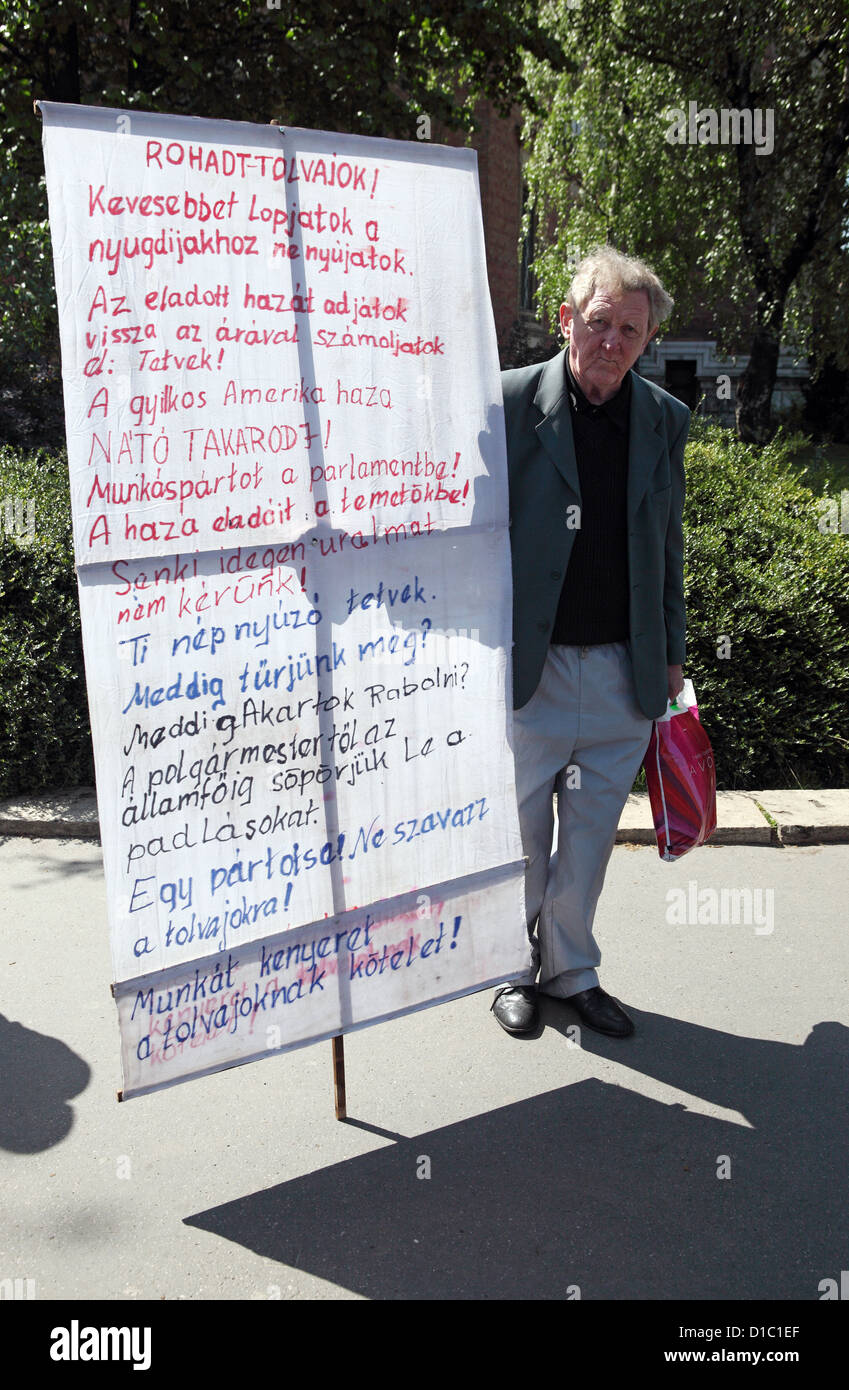 ROHADT-TOLVAJOK!
Kevesebbet Lopjatok a
nyugdijakhoz ne nyújatok.
Az eladott hazát adjátok
vissza az árával számoljatok
el: Tetvek!
A gyilkos Amerika haza
NATÓ TAKARODJ!
Munkáspártot a parlamentbe!
A haza eladóit a temetőkbe!
Senki idegen uralmat
nem kérünk!
Ti nép nyúzó tetvek.
Meddig tűrjünk még?
Meddig Akartok Rabolni?
A polgármestertől az
államfőig söpörjük Le a
padLásokat.
Egy pártotse! Ne szavazz
a tolvajokra!
Munkát kenyeret
a tolvajoknak kötelet!
AVO
alamy
Image ID: D1C1EF
www.alamy.com